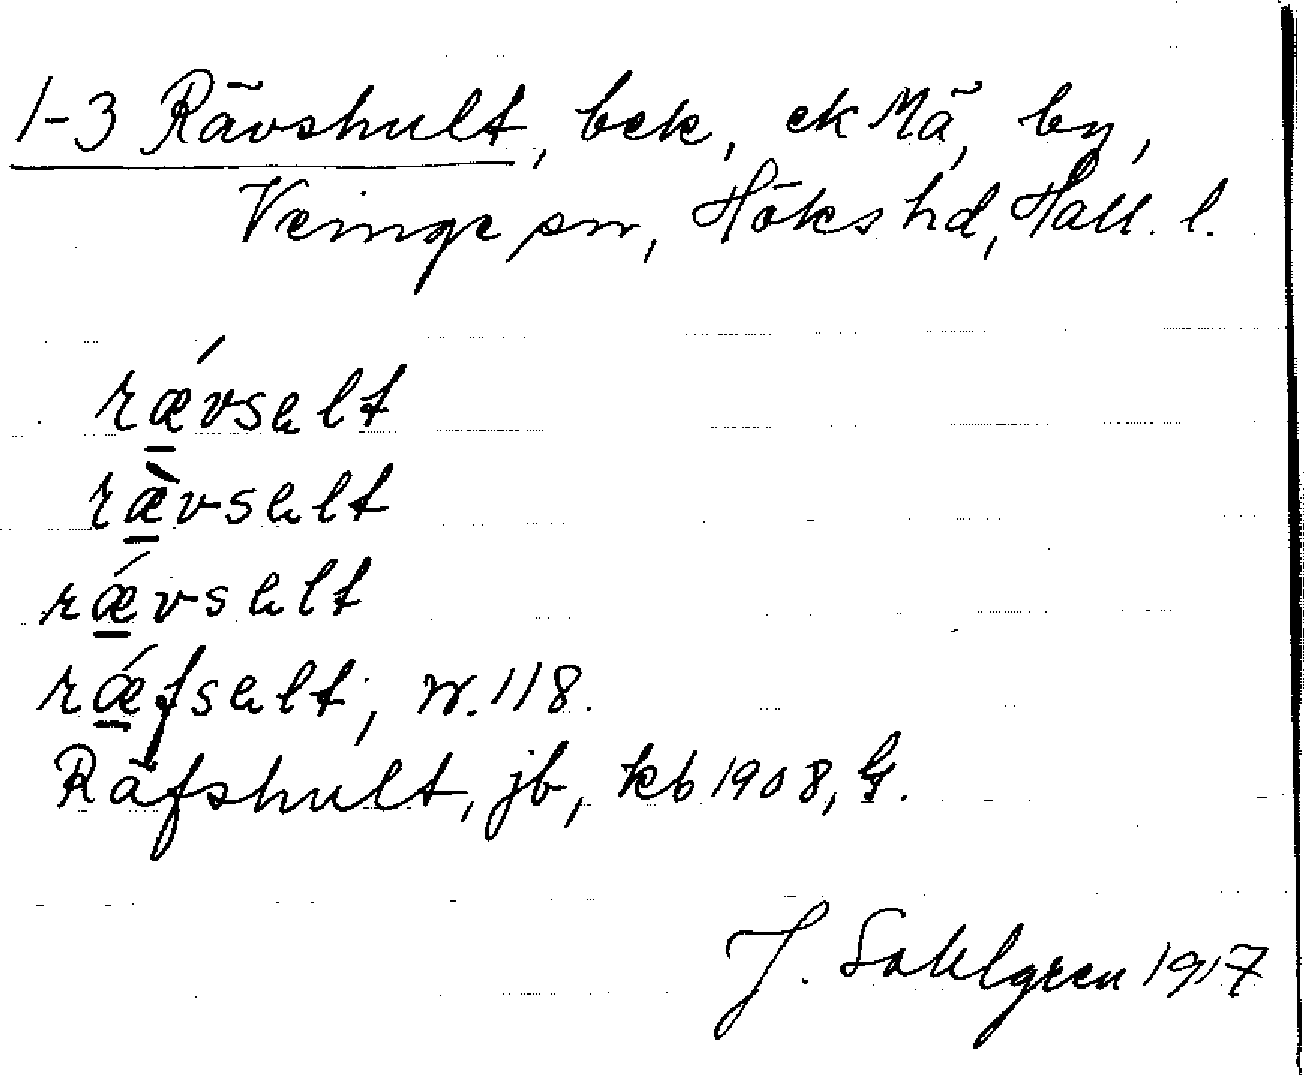 1-3 Rävshult, bek, ek Mä, by,
Veinge sn, Höks hd, Hall. l.
rǽvsalt
ræ̀vsalt
rǽvsalt
rǽfsalt, nr. 118.
Räfshult, jb, kb 1908, G.
J. Sahlgren 1917